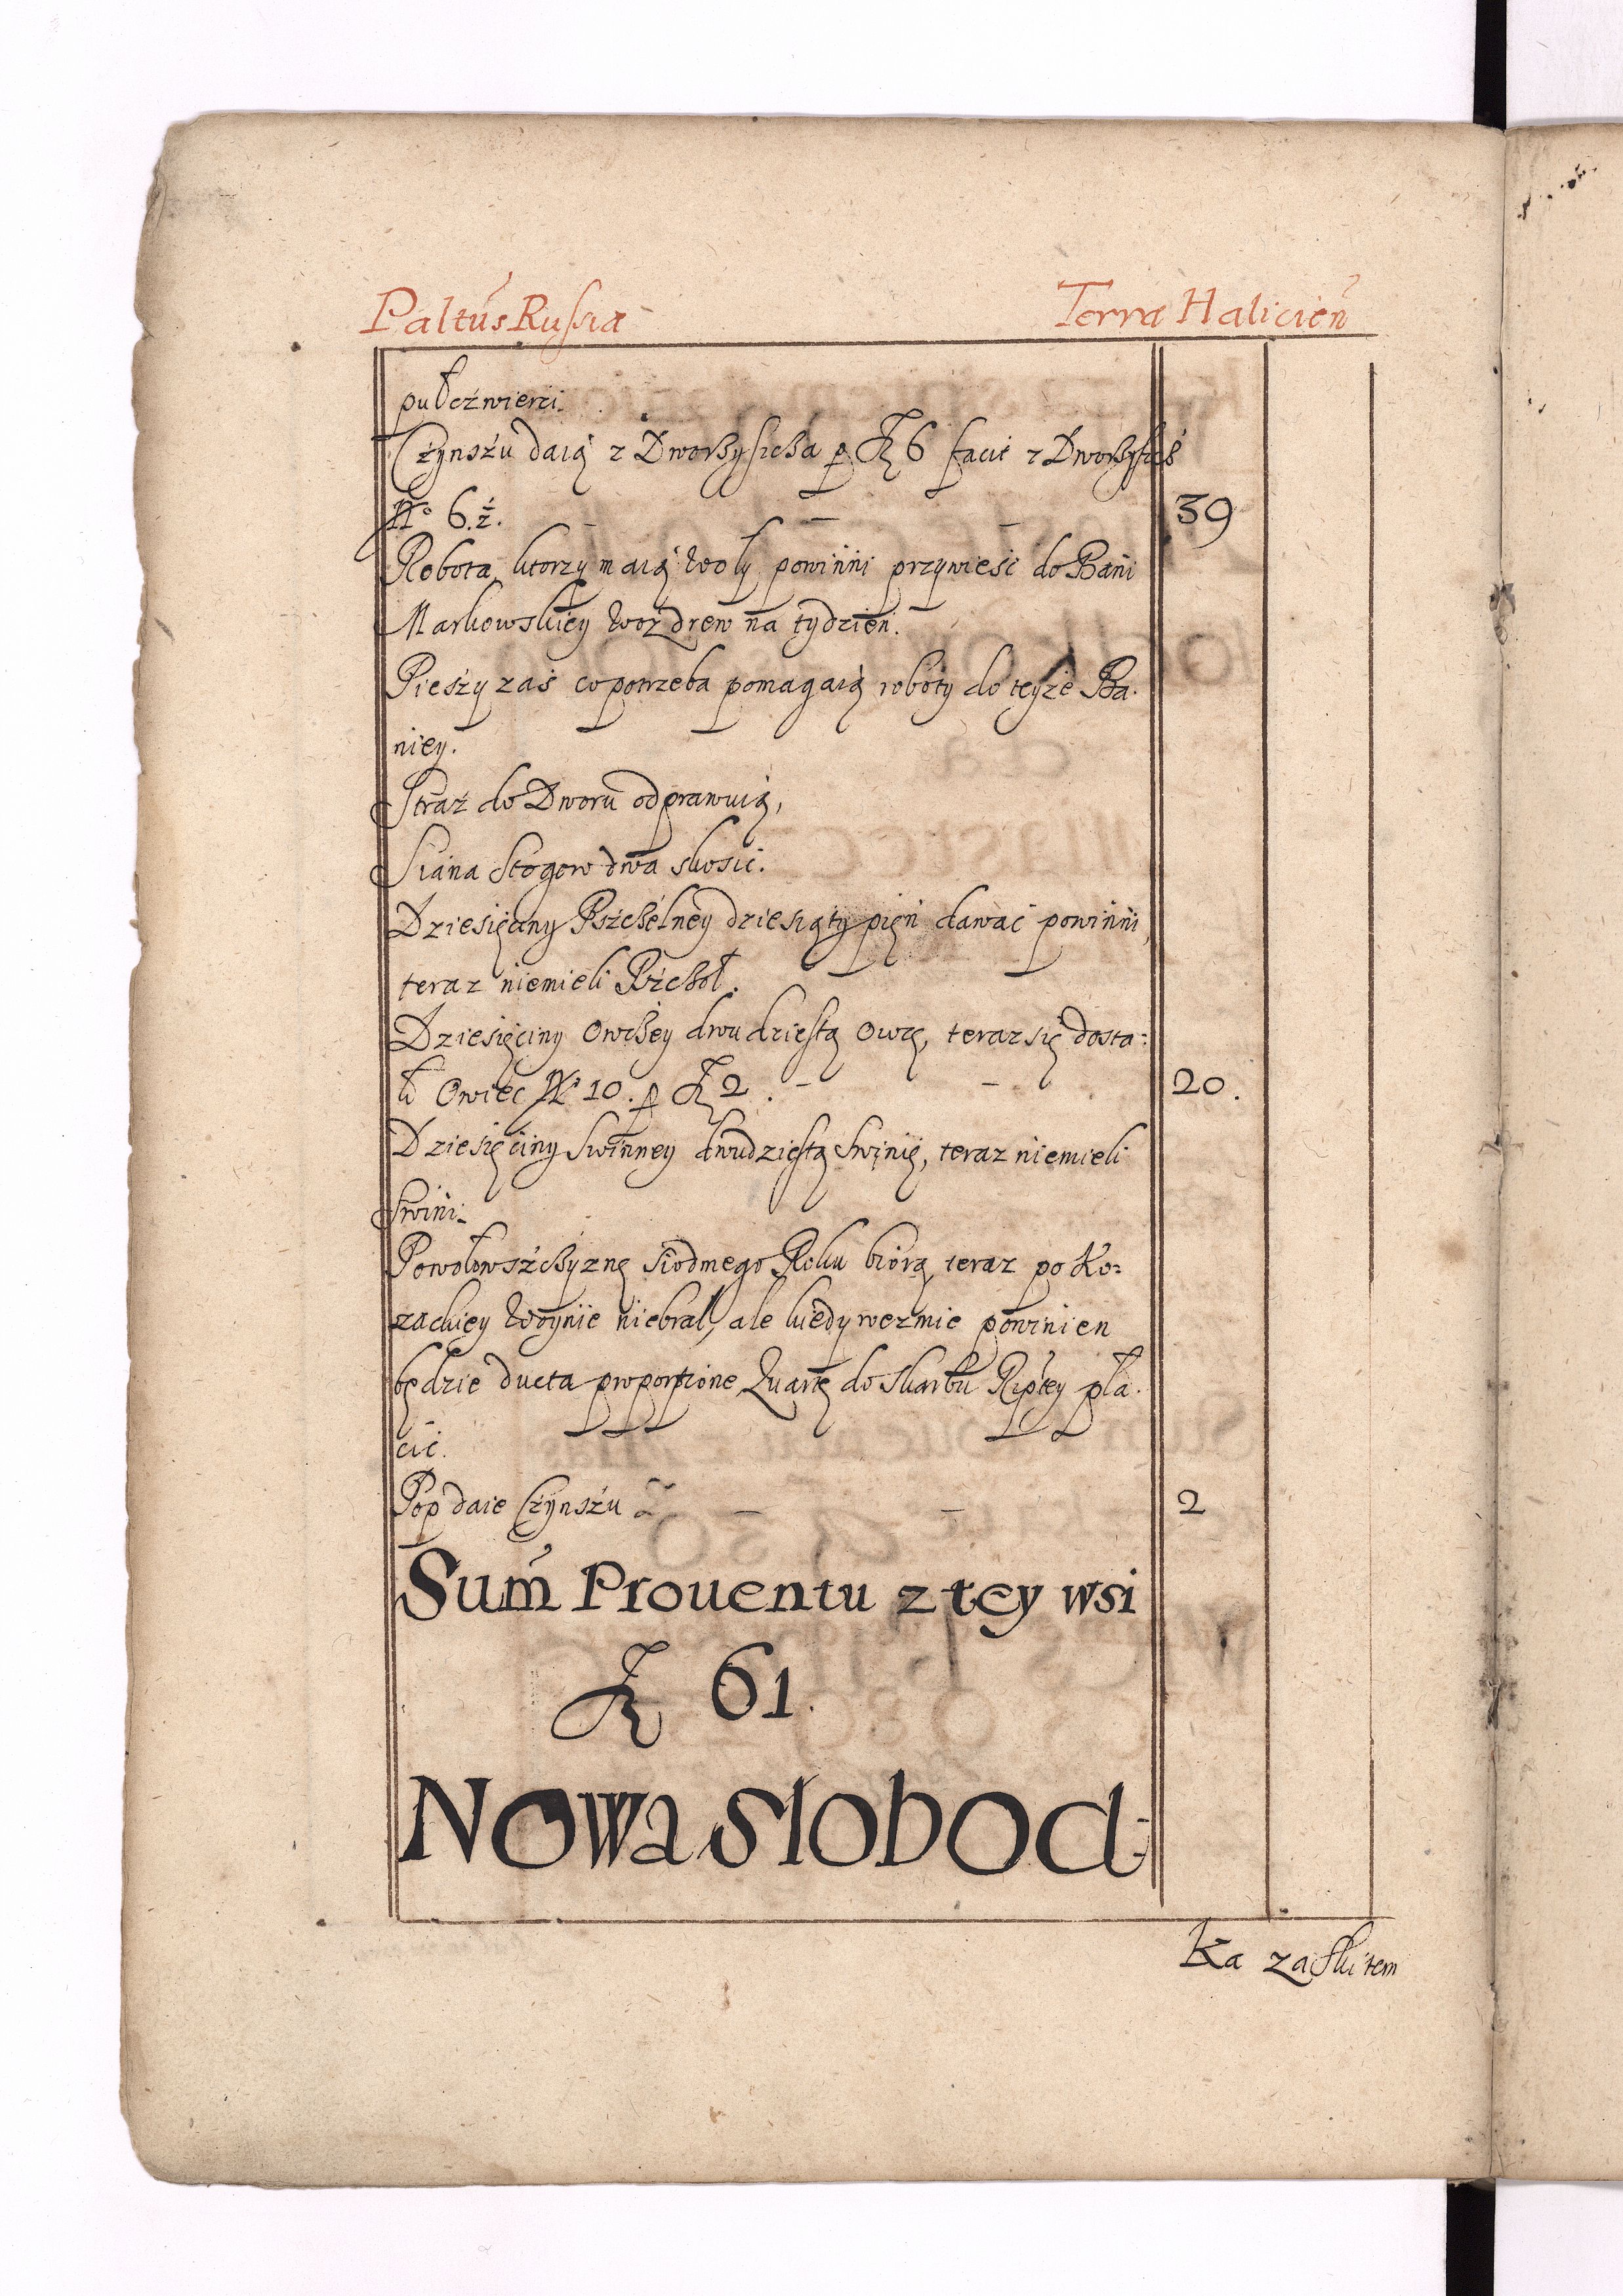 Paltus Russiæ Terra Halicien
puł czwierci.
Czynszu daią z Dworzyscza p Zł 6 facit z Dworzyscz
No 6.½. 39
Robota, ktorzy maią woły powinni przywieść do Bani
Markowskiey woz drew na tydzien.
Pieszy zaś co potrzeba pomagaią roboty do teyże Ba-
niey.
Straż do Dworu odprawuią,
Siana Stogow dwa skosić.
Dziesięciny Pszczelney dziesiąty pięń dawać powinni,
teraz niemieli Pszczoł.
Dziesięciny Owczey dwudziestą Owcę, teraz się dosta:
ło Owiec No 10. p Zł 2. 20.
Dziesięciny Swinney dwudziestą Swinię, teraz niemieli
Swini.
Powołowszczyznę siodmego Roku biorą, teraz po Ko-
zackiey woynie niebrał, ale kiedy wezmie powinien
będzie ducta proportione Quartę do Skarbu Rptey pła-
cić.
Pop daie Czynszu 2
Sum Prouentu z tey wsi
Zł 61.
Nowa Slobod-
ka za Skitem